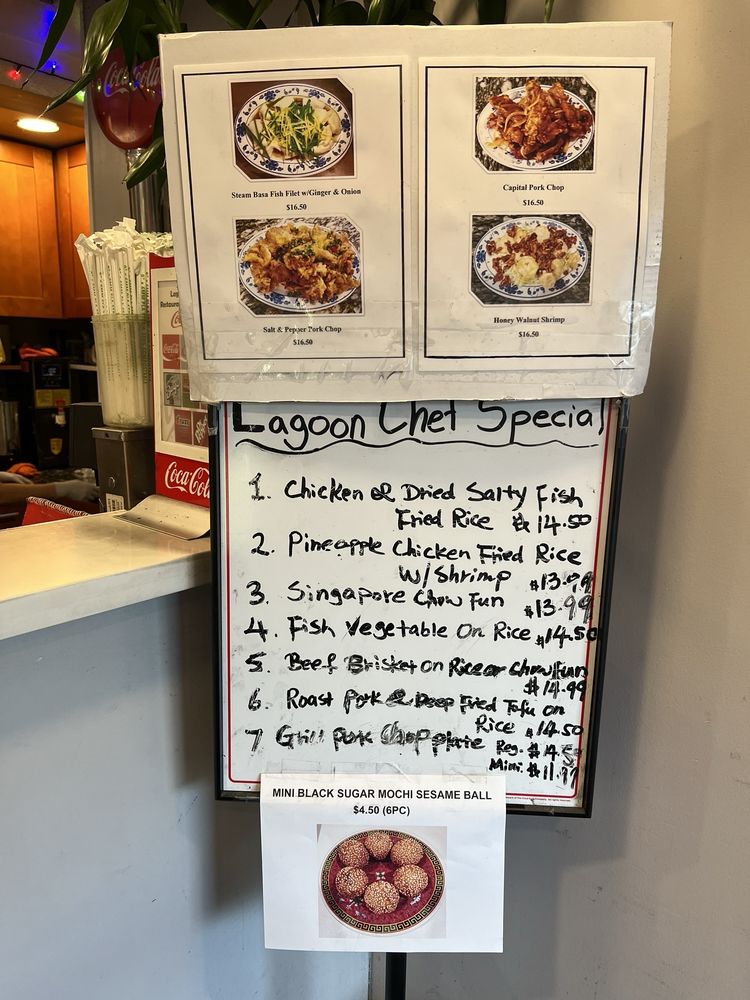 Coca-Cola
Steam Basa Fish Filet w/Ginger & Onion
$16.50
Capital Pork Chop
$16.50
Salt & Pepper Pork Chop
$16.50
Honey Walnut Shrimp
$16.50
Coca-Cola
Lagoon Chef Special
1. Chicken & Dried Salty Fish
Fried Rice $14.50
2. Pineapple Chicken Fried Rice
W/Shrimp $13.99
3. Singapore Chow Fun $13.99
4. Fish Vegetable On Rice $14.50
5. Beef Brisket on Rice or Chow Fun
$14.99
6. Roast Pork & Deep Fried Tofu on
Rice $14.50
7 Grill pork chop plate Reg. $14.50
Mini. $11.99
MINI BLACK SUGAR MOCHI SESAME BALL
$4.50 (6PC)